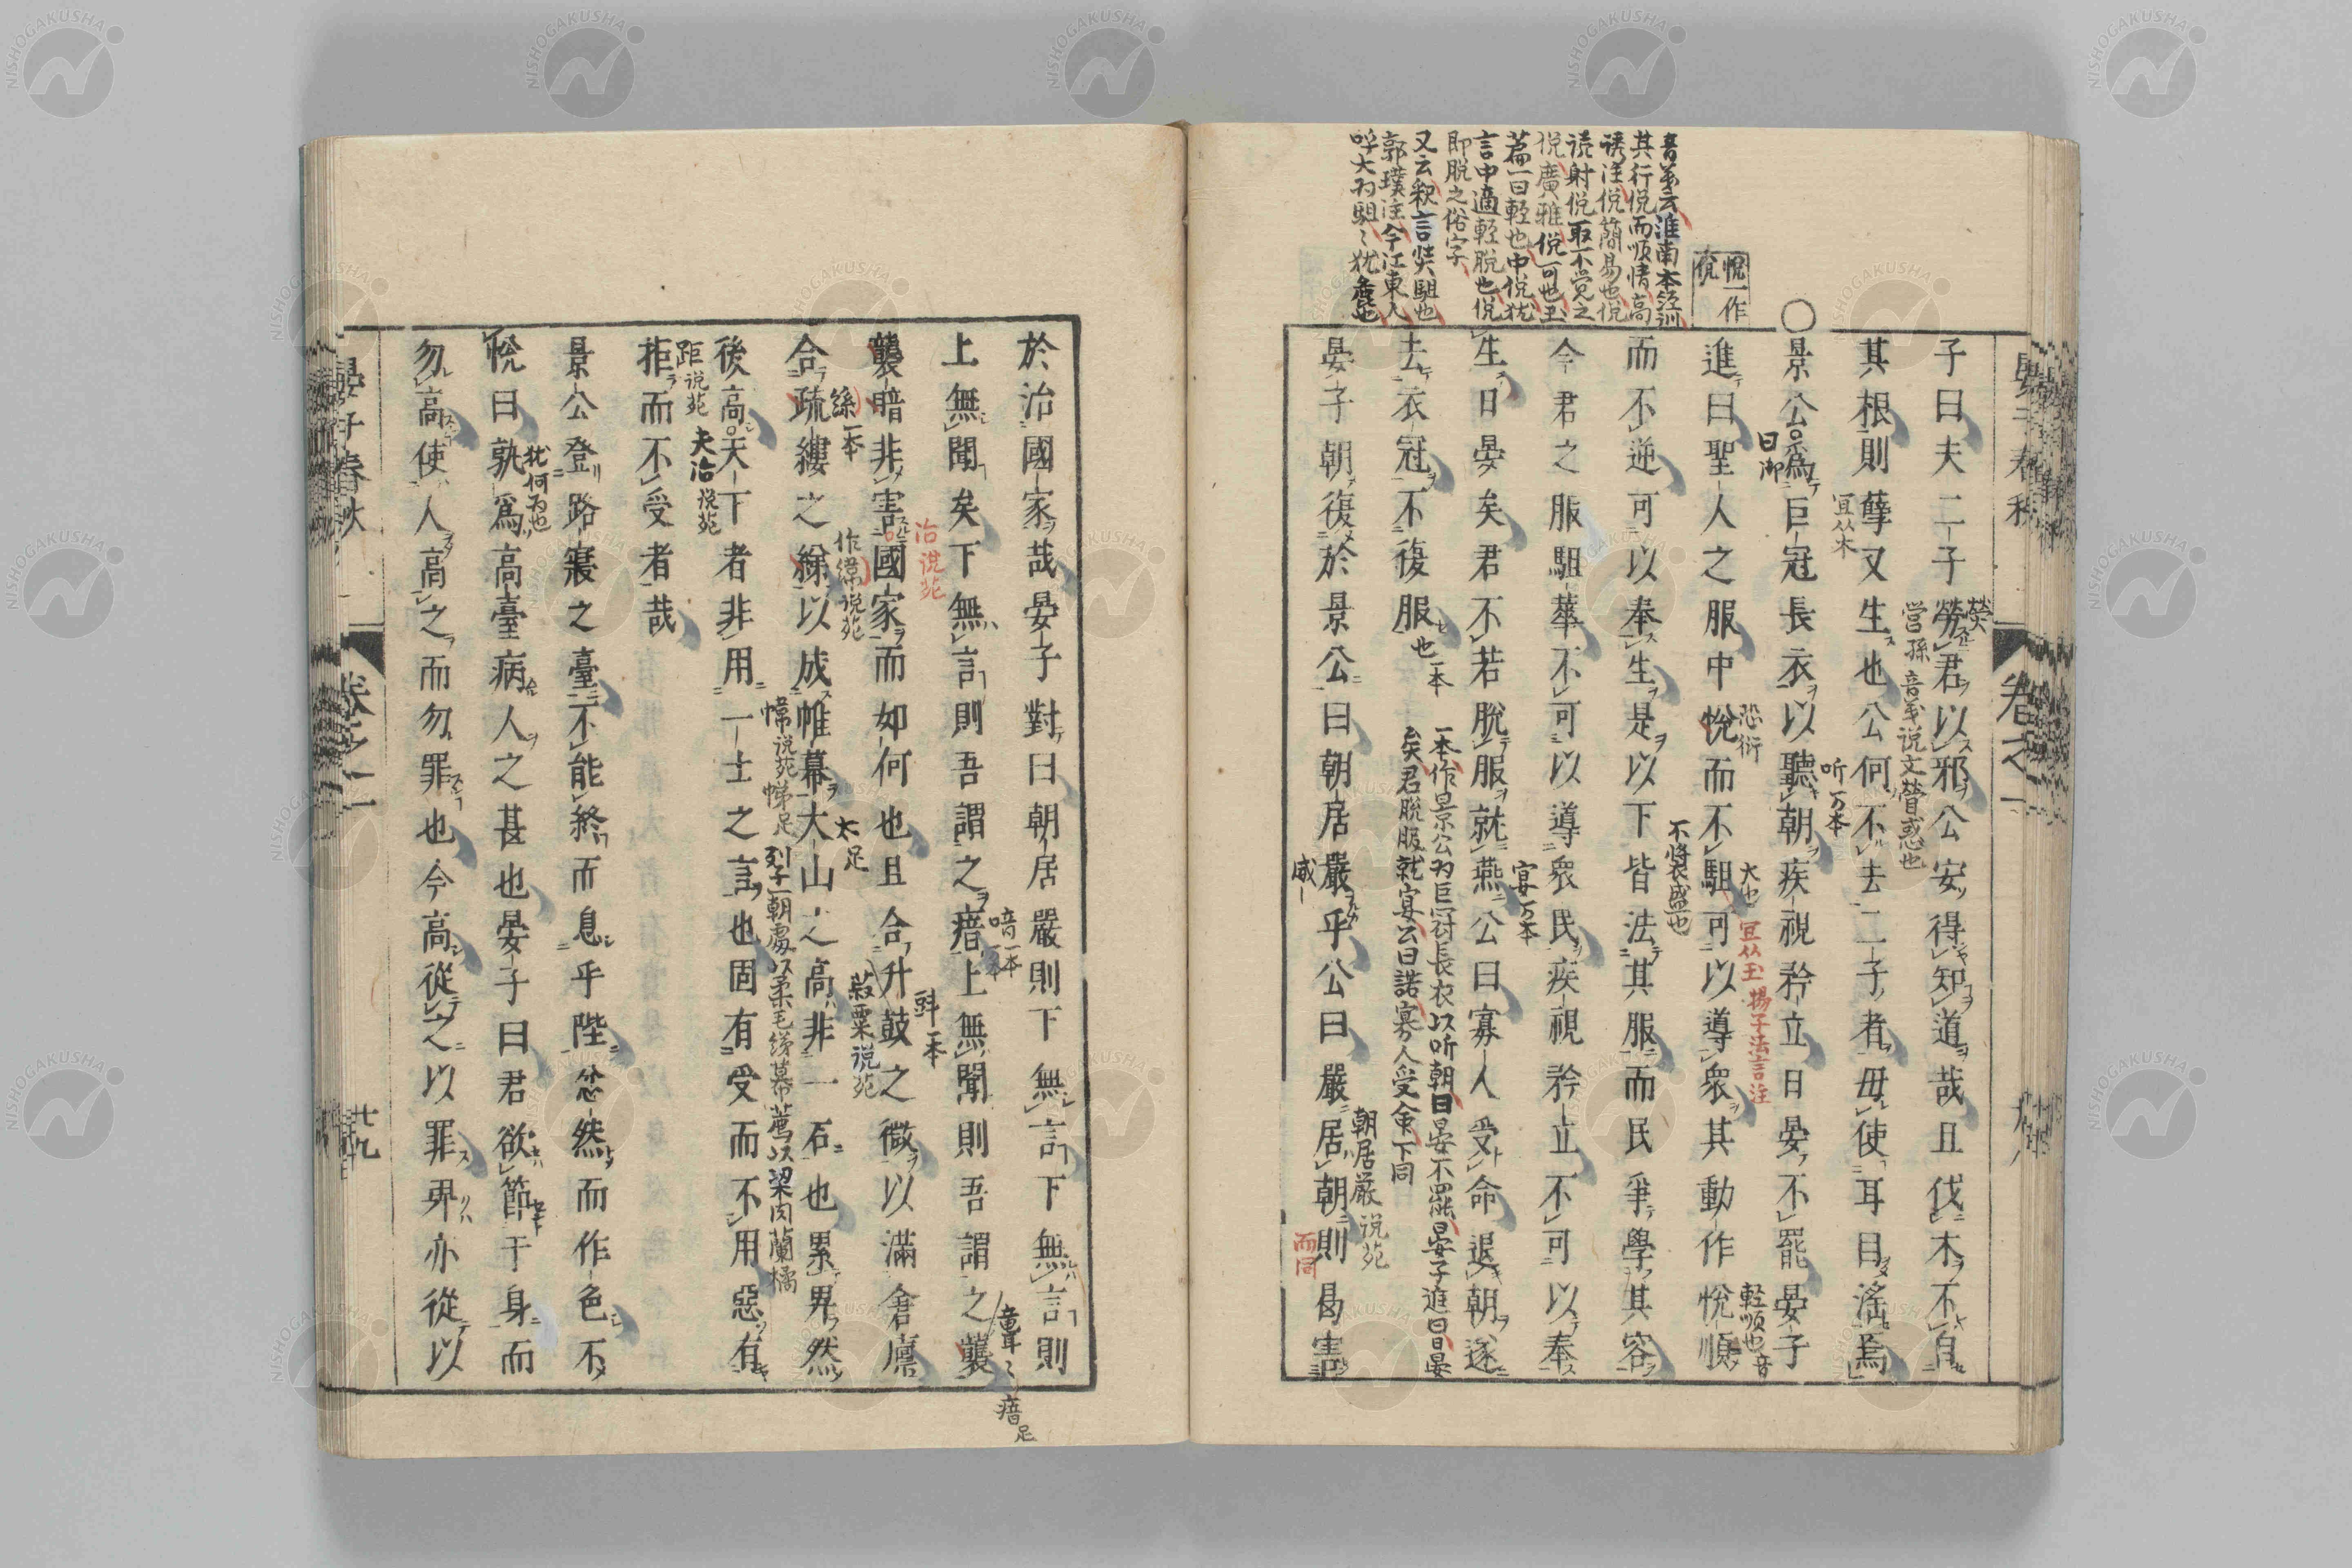 子曰夫二子勞君以邪公安得知道哉且伐木不自
其根則孽又生也公何不去二子者毋使耳目淫焉
景公爲巨冠長衣以聽朝疾視矜立日晏不罷晏子
進曰聖人之服中悅而不駔可以導衆其動作悅順
而不逆可以奉生是以下皆法其服而民爭學其容
今君之服駔華不可以導衆民疾視矜立不可以奉
生日晏矣君不若脫服就燕公曰寡人受命退朝遂
去衣冠不復服
晏子朝復於景公曰朝居嚴乎公曰嚴居朝則曷害
於治國家哉晏子對曰朝居嚴則下無言下無言則
上無聞矣下無言則吾謂之瘖上無聞則吾謂之聾
聾暗非害國家而如何也且合升鼓之微以滿倉廩
合疏縷之綈以成帷幕大山之高非一石也累卑然
後高天下者非用一士之言也固有受而不用惡有
拒而不受者哉
景公登路寢之臺不能終而息乎陛忿然而作色不
悅曰孰爲高臺病人之甚也晏子曰君欲節于身而
勿高使人高之而勿罪也今高從之以罪卑亦從以
悅一作
音義云淮南本經訓
其行侻而順情高
誘注侻簡易也侻
讀射侻取不覺之
侻廣雅侻可也玉
篇一曰輕也中侻犹
言中適輕脫也侻
即脫之俗字
又云釈言奘駔也
郭璞注今江東人
呼大为駔〻犹麤也
営孫 音義说文瞢惑也
宜从木
听万本
恐衍
大也
宜从玉 揚子法言注
輕順也音
宴万本
也一本
一本作景公为巨冠長衣以听朝日晏不罷晏子進曰日晏
矣君脫服就宴公曰諾寡人受命下同
朝居厳说苑
咸
而同
喑一本
治说苑
斞一本
菽粟说苑
絲一本
作緯说苑
太足
幃说苑
距说苑
夫治说苑
列子一朝處以柔毛綈幕薦以梁肉蘭橘
犹何为也
晏子春秋
卷之一
廿九